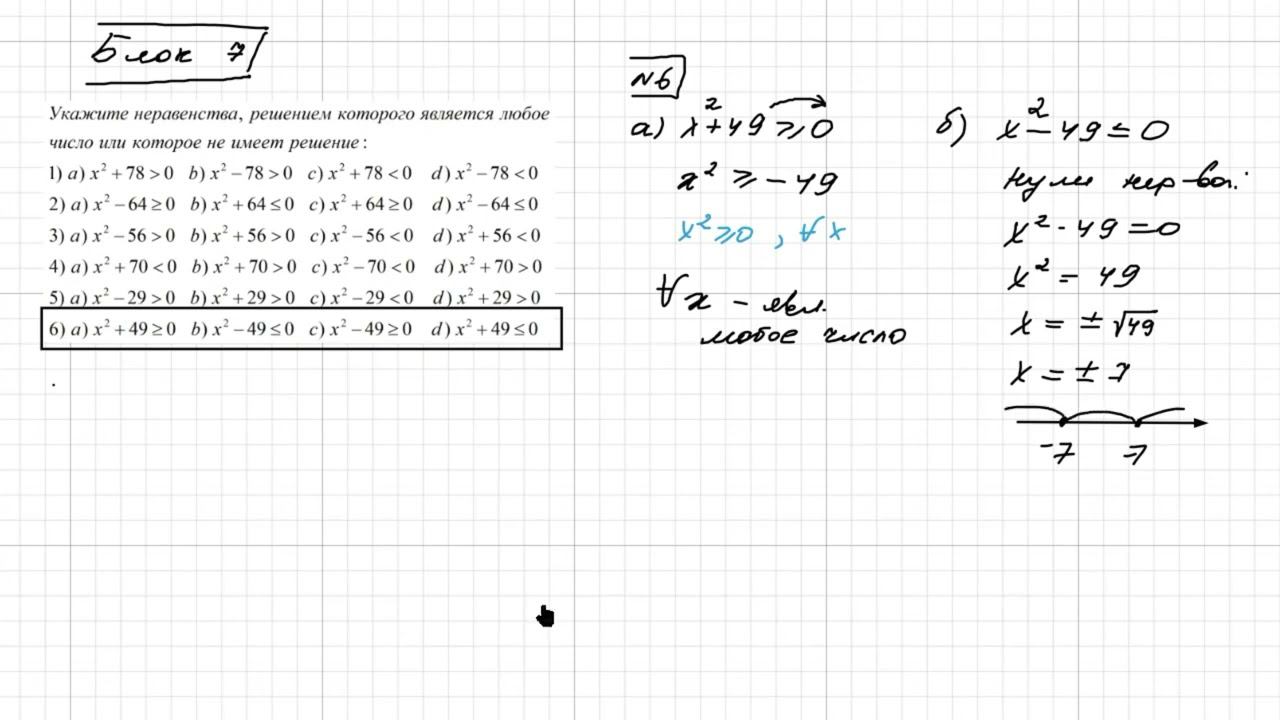 Блок 7
Укажите неравенства, решением которого является любое
число или которое не имеет решение:
1) a) x² + 78 > 0 b) x² − 78 > 0 c) x² + 78 < 0 d) x² − 78 < 0
2) a) x² − 64 ≥ 0 b) x² + 64 ≤ 0 c) x² + 64 ≥ 0 d) x² − 64 ≤ 0
3) a) x² − 56 > 0 b) x² + 56 > 0 c) x² − 56 < 0 d) x² + 56 < 0
4) a) x² + 70 < 0 b) x² + 70 > 0 c) x² − 70 < 0 d) x² + 70 > 0
5) a) x² − 29 > 0 b) x² + 29 > 0 c) x² − 29 < 0 d) x² + 29 > 0
6) a) x² + 49 ≥ 0 b) x² − 49 ≤ 0 c) x² − 49 ≥ 0 d) x² + 49 ≤ 0
№6
а) x² + 49 ≥ 0
x² ≥ − 49
x² ≥ 0 , ∀ x
∀ x − явл.
любое число
б) x² − 49 ≤ 0
нули нер-ва:
x² - 49 = 0
x² = 49
x = ± √49
x = ± 7
-7 7